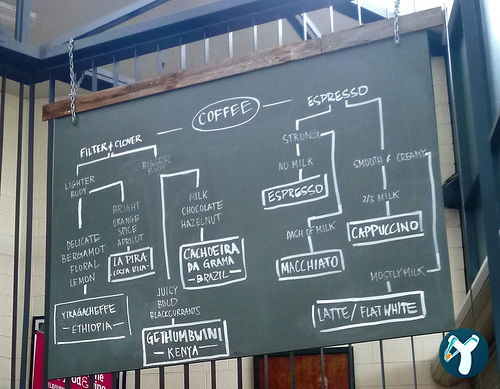 COFFEE
FILTER & CLOVER
LIGHTER
BODY
BIGGER
BODY
DELICATE
BERGAMOT
FLORAL
LEMON
YIRAGACHEFFE
- ETHIOPIA -
BRIGHT
ORANGE
SPICE
APRICOT
LA PIRA
COSTA RICA -
MILK
CHOCOLATE
HAZELNUT
CACHOEIRA
DA GRAMA
- BRAZIL -
JUICY
BOLD
BLACKCURRANTS
GETHUMBWINI
- KENYA -
ESPRESSO
STRONG
NO MILK
ESPRESSO
DASH OF MILK
MACCHIATO
SMOOTH & CREAMY
2/3 MILK
CAPPUCCINO
MOSTLY MILK
LATTE / FLAT WHITE